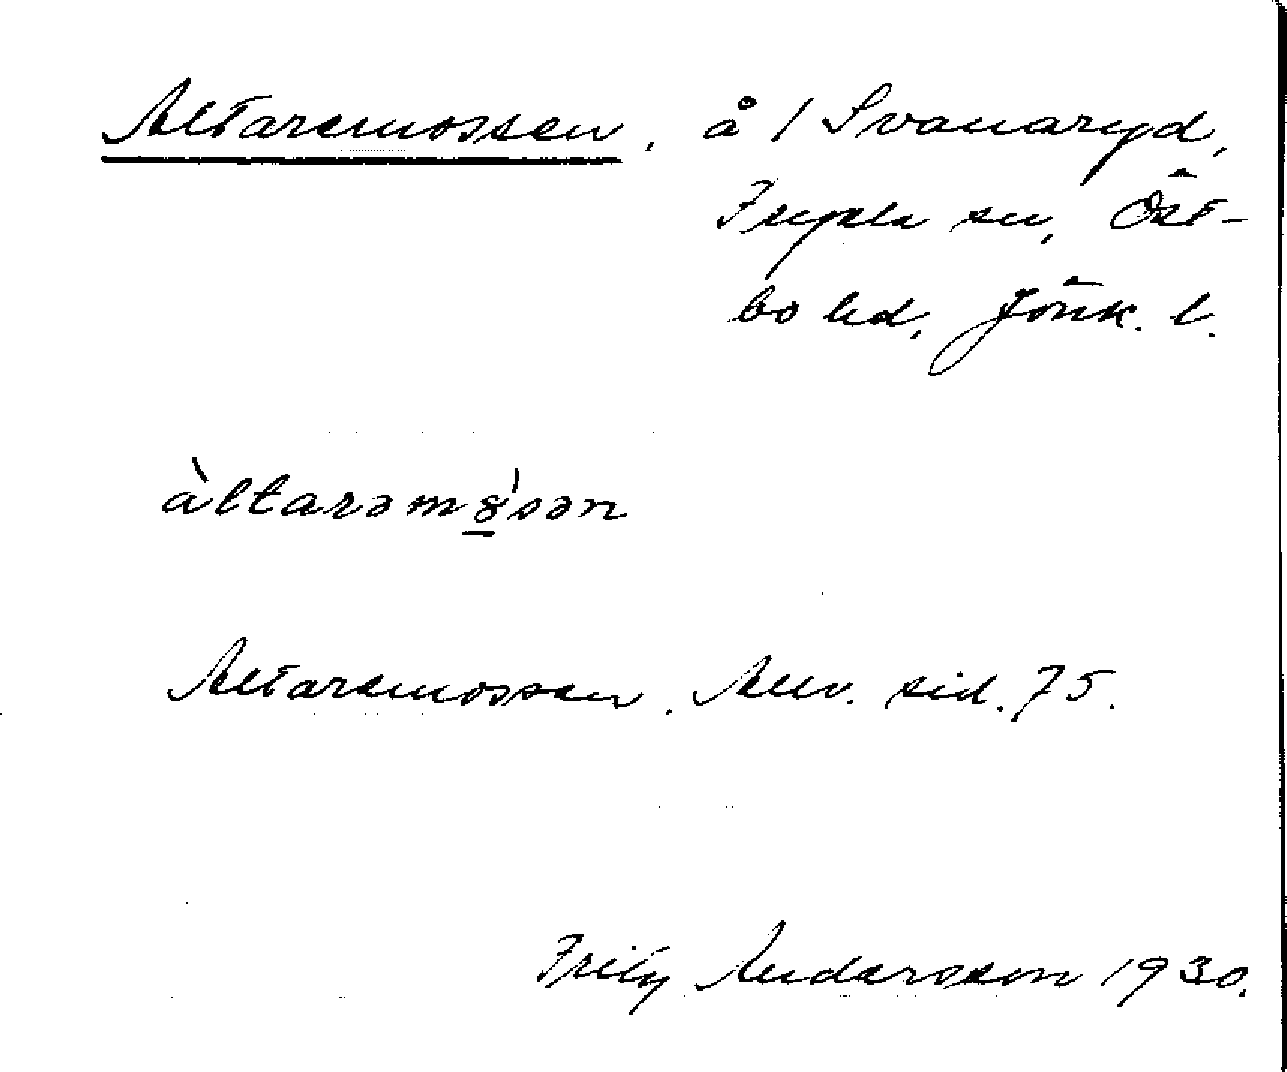 Altaremossen. å 1 Svanaryd,
Fryele sn, Öst-
bo hd, Jönk. l.
àltarəmo̱'sən
Altaremossen. Anv. sid. 75.
Andersson 1930.